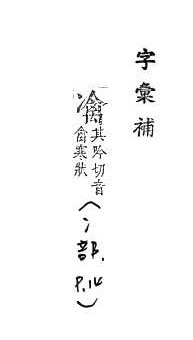 字彙補
其吟切音
禽寒狀
(冫部. P.14)